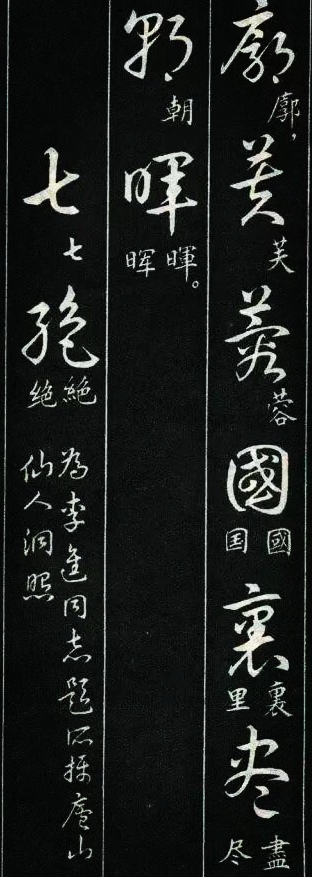 廓廓，芙芙蓉蓉國國国裏裏里尽盡尽
朝朝暉暉。晖
七七絶絶绝
為李進同志題所攝廬山
仙人洞照